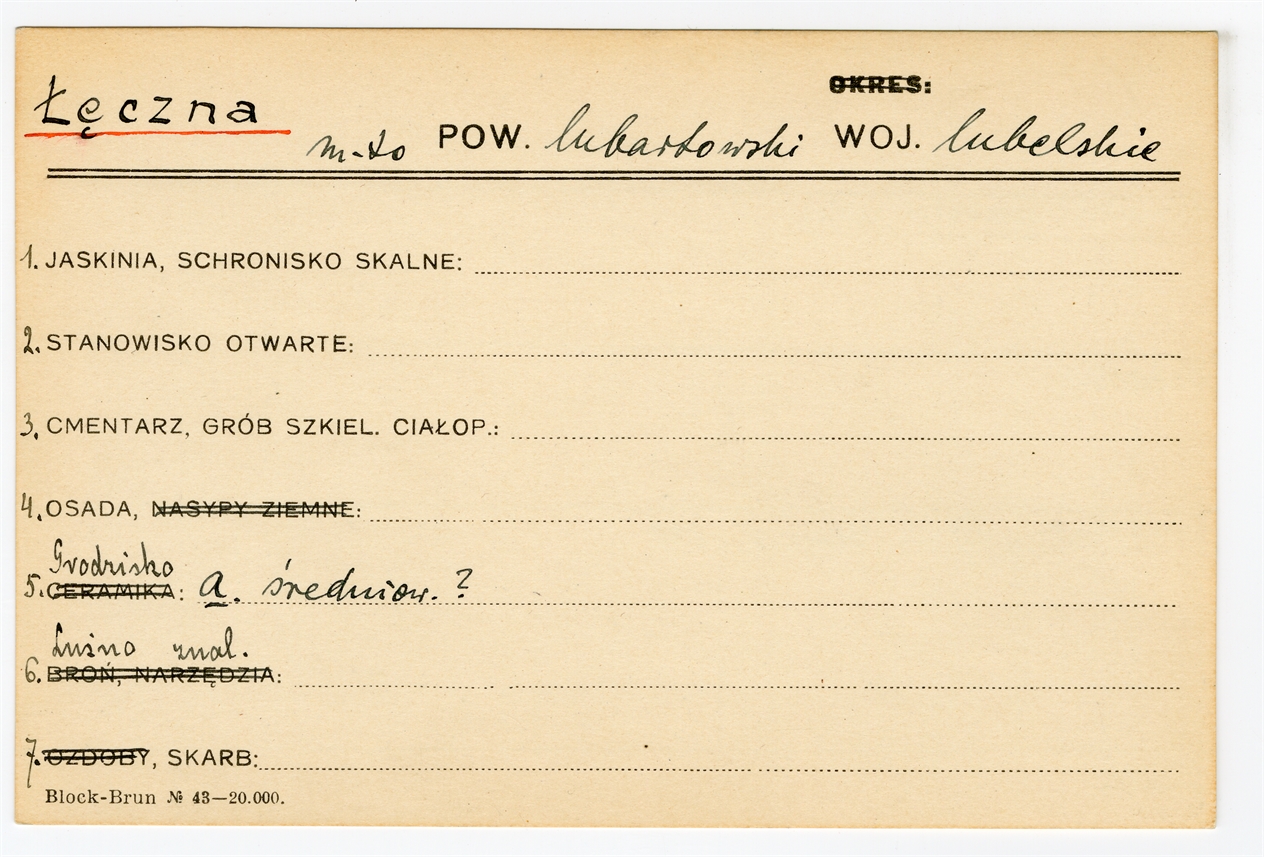 OKRES:
Łęczna
m-to POW. lubartowski WOJ. lubelskie
1. JASKINIA, SCHRONISKO SKALNE:
2. STANOWISKO OTWARTE:
3. CMENTARZ, GRÓB SZKIEL. CIAŁOP.:
4. OSADA, NASYPY ZIEMNE:
Grodzisko
5. CERAMIKA: a. średniow. ?
Luźno znal.
6. BROŃ, NARZĘDZIA:
7. OZDOBY, SKARB:
Block-Brun № 43—20.000.